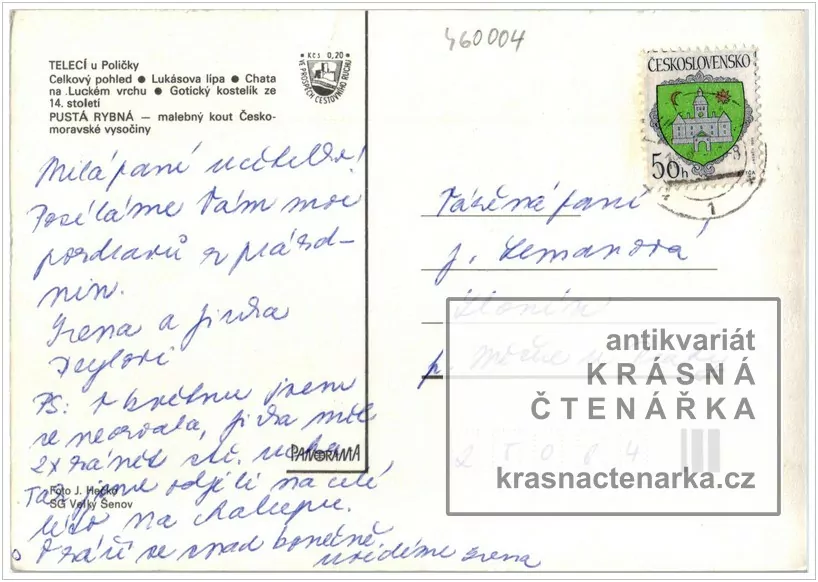 TELECÍ u Poličky
Celkový pohled ● Lukásova lípa ● Chata
na Luckém vrchu ● Gotický kostelík ze
14. století
PUSTÁ RYBNÁ — malebný kout Česko-
moravské vysočiny
Kčs 0,20
VE PROSPĚCH CESTOVNÍHO RUCHU
460004
ČESKOSLOVENSKO
50h
1
Milá paní učitelko!
Posíláme Vám moc
pozdravů z prázd-
nin.
Irena a Jirka
PS: V květnu jsem
se neozvala, Jirka měl
2x zánět stř. ucha.
Tak jsme odjeli na celé
léto na chalupu.
V září se snad konečně
uvidíme Irena
Vážená paní
J. Lemanová
p.
25084
PANORAMA
Foto J. Hečko
SG Velký Šenov
antikvariát
KRÁSNÁ
ČTENÁŘKA
krasnactenarka.cz